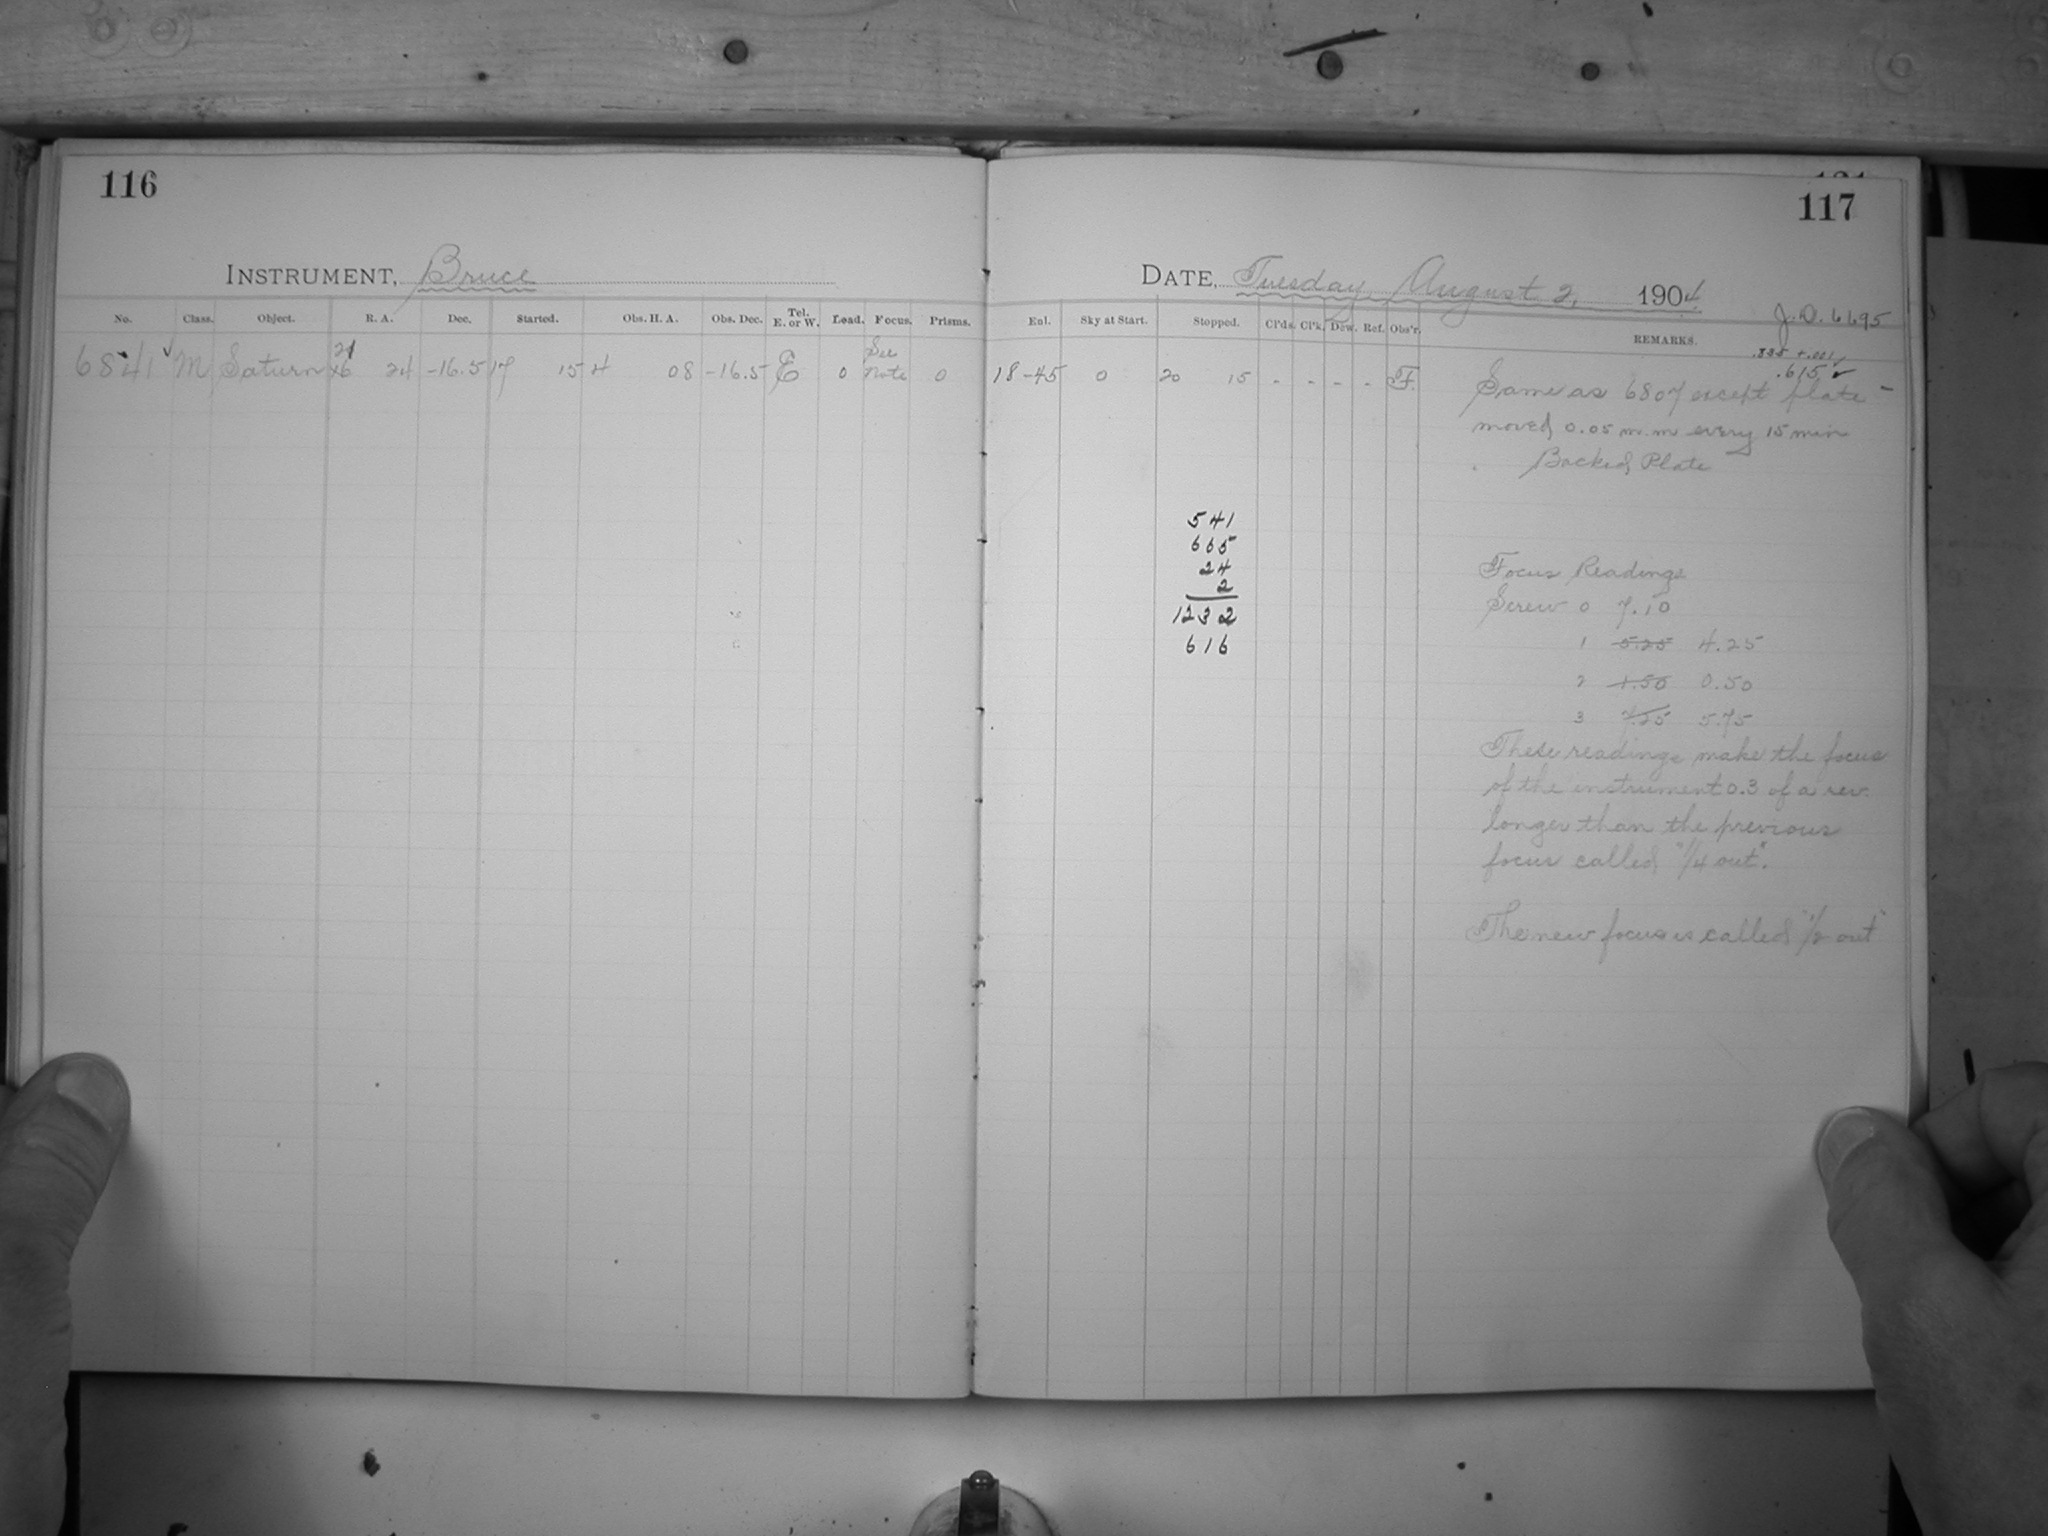 116
INSTRUMENT, Bruce
No. Class. Object. R. A. Dec. Started. Obs. H. A. Obs. Dec. Tel. E. or W. Load. Focus. Prisms.
6841 M Saturn 21 24 -16.5 17 15 4 08 -16.5 E 0 See Note 0
117
DATE, Tuesday, August 2, 1904
J.D. 6695
Enl. Sky at Start. Stopped. Cl'ds. Cl'k. Dew. Ref. Obs'r. REMARKS.
.835 +.001
.615
18-45 0 20 15 - - - - F.
Same as 6807 except plate
moved 0.05 m.m every 15 min
Backed Plate
541
665
24
2
1232
616
Focus Readings
Screw 0 7.10
1 5.25 4.25
2 1.50 0.50
3 7.25 5.75
These readings make the focus
of the instrument 0.3 of a rev.
longer than the previous
focus called "1/4 out".
The new focus is called "1/2 out"